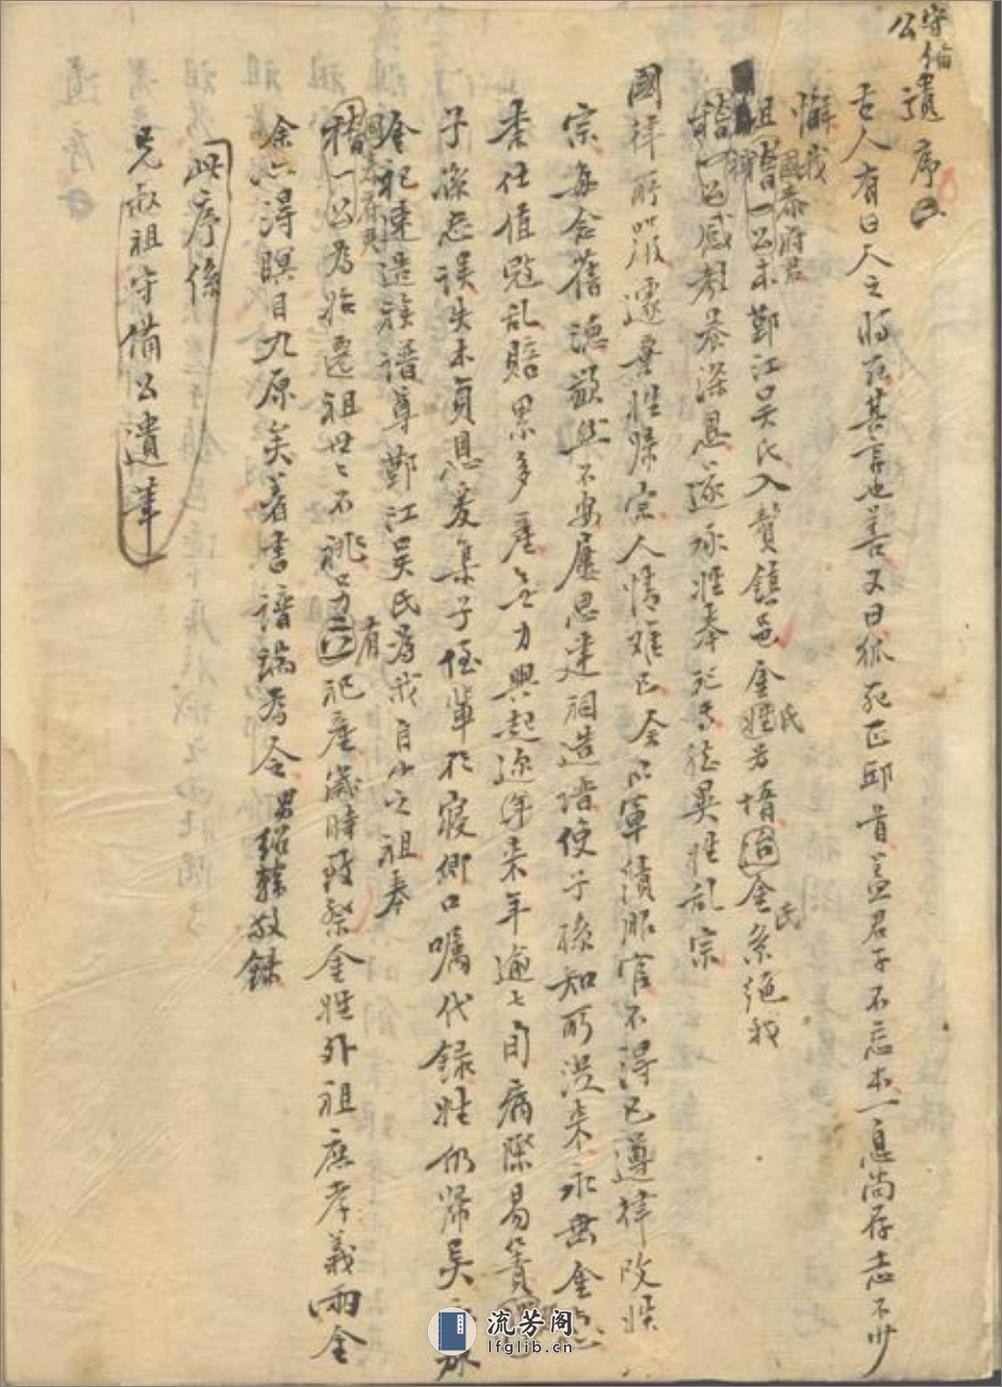 守備
公遺序
古人有曰人之將死其言也善又曰狐死正邱首蓋君子不忘本一息尚存志不少
懈我
國泰府君
祖稽一公本鄞江吳氏入贅鎮邑金姓為壻治金氏系絕我
氏
稽一公感養深恩遂承姓奉祀異姓亂宗
國律所嚴遽棄姓歸宗人情難已余以軍績服官不得已遵律改姓
宗每念舊德歉然不安屢思建祠造譜使子孫知所從來永垂金
奈仕值亂賠累多產無力興起邇年來年逾七旬病際易簀
子孫忘誤失本負恩爰集子侄輩於寢側口囑代錄姓仍歸吳
金祀速造族譜尊鄞江吳氏為我自出之祖奉
國泰府君
稽一公為始遷祖世世不祧另有祀產歲時致祭金姓外祖庶孝義兩全
余亦得瞑目九原矣著書譜端為令男紹 敬錄
此序係
兄叔祖守備公遺筆
流芳阁
lfglib.cn